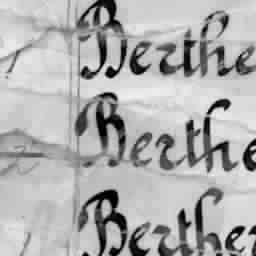 Berthe
Berthe
Berther